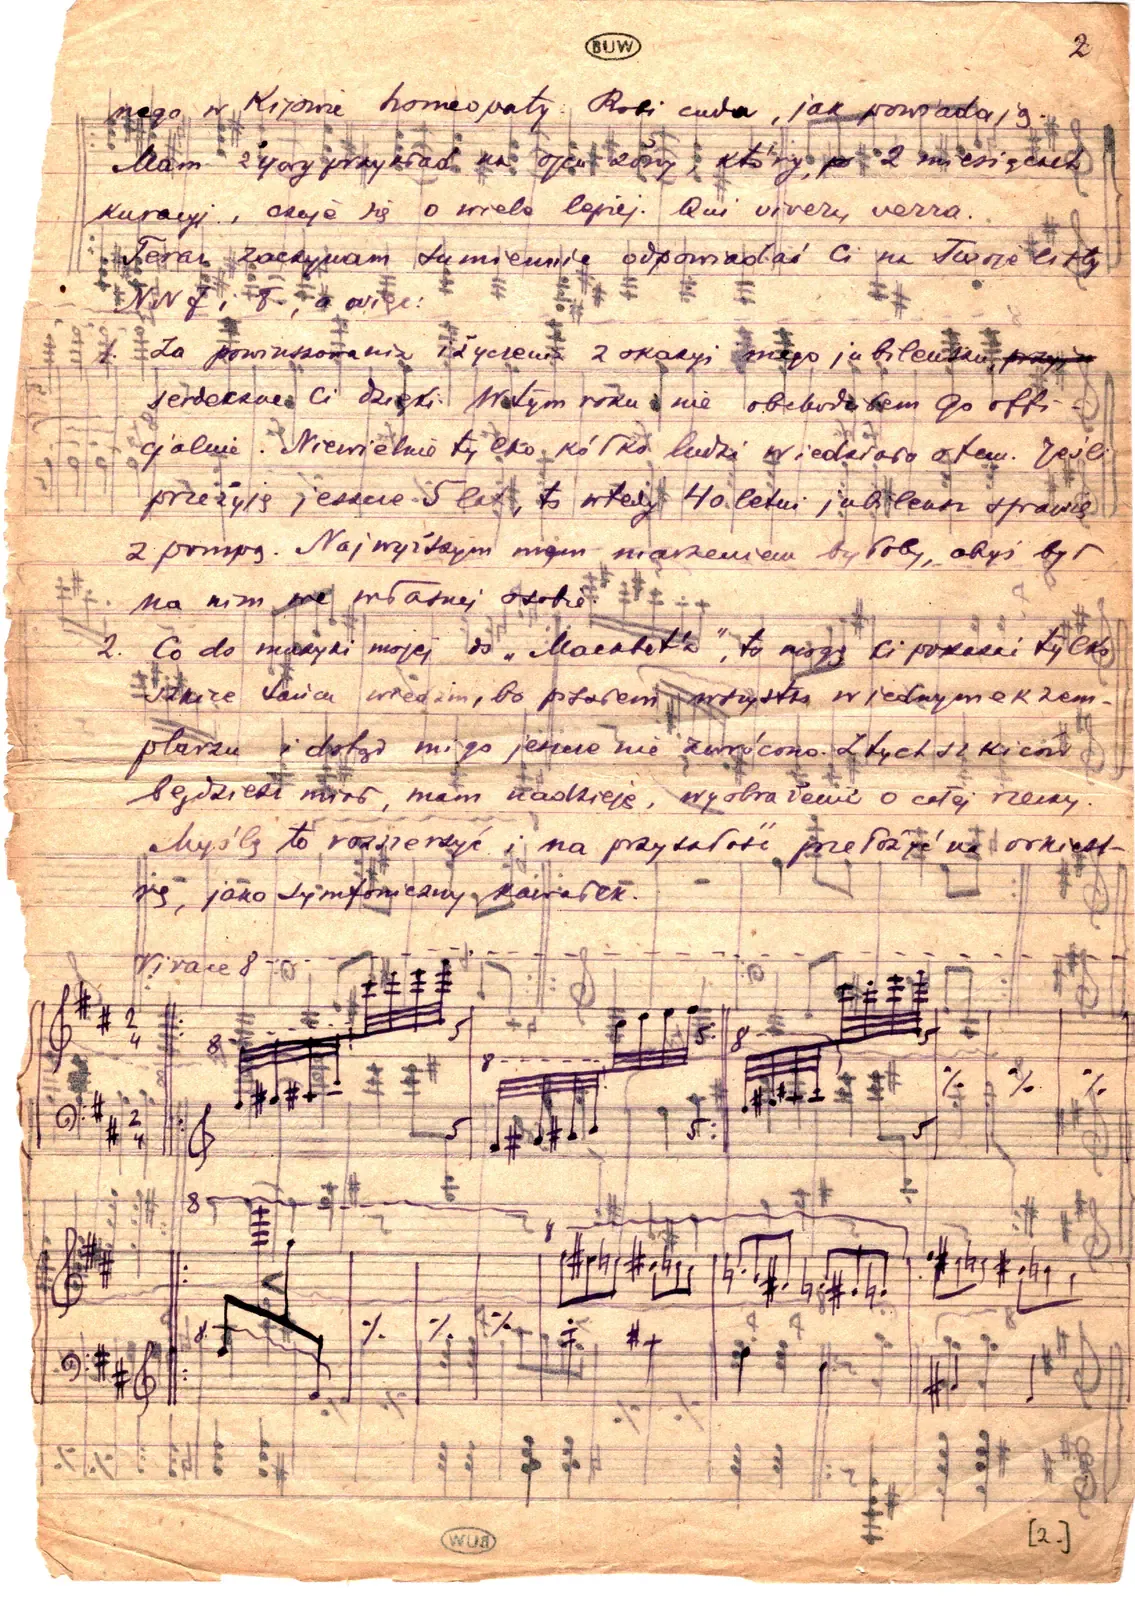 BUW
2
nego w Kijowie homeopaty. Robi cuda, jak powiadają.
Mam żywy przykład na ojcu żony, który, po 2 miesiącach
kuracyi, czuje się o wiele lepiej. Qui vivra verra.
Teraz zaczynam sumiennie odpowiadać Ci na Twoje listy
NN 7 i 8, a więc:
1. Za powinszowania i życzenia z okazyi mego jubileuszu,
serdeczne Ci dzięki. W tym roku nie obchodziłem go offi-
cjalnie. Niewielkie tylko kółko ludzi wiedziało o tem. Jeśli
przeżyję jeszcze 5 lat, to wtedy 40 letni jubileusz sprawię
z pompą. Najwyższym mojem marzeniem byłoby, abyś był
na nim we własnej osobie.
2. Co do muzyki mojej do „Macbet'a", to mogę Ci pokazać tylko
szkice tańca wiedźm, bo pisałem wszystko w jednym egzem-
plarzu i dotąd mi go jeszcze nie zwrócono. Z tych szkiców
będziesz miał, mam nadzieję, wyobrażenie o całej rzeczy.
Myślę to rozszerzyć i na przyszłość przełożyć na orkiest-
rę, jako symfoniczny kawałek.
Vivace 8
2
4
8
5
8
5
8
5
2
4
5
5
5
8
8
8
BUW
[2.]